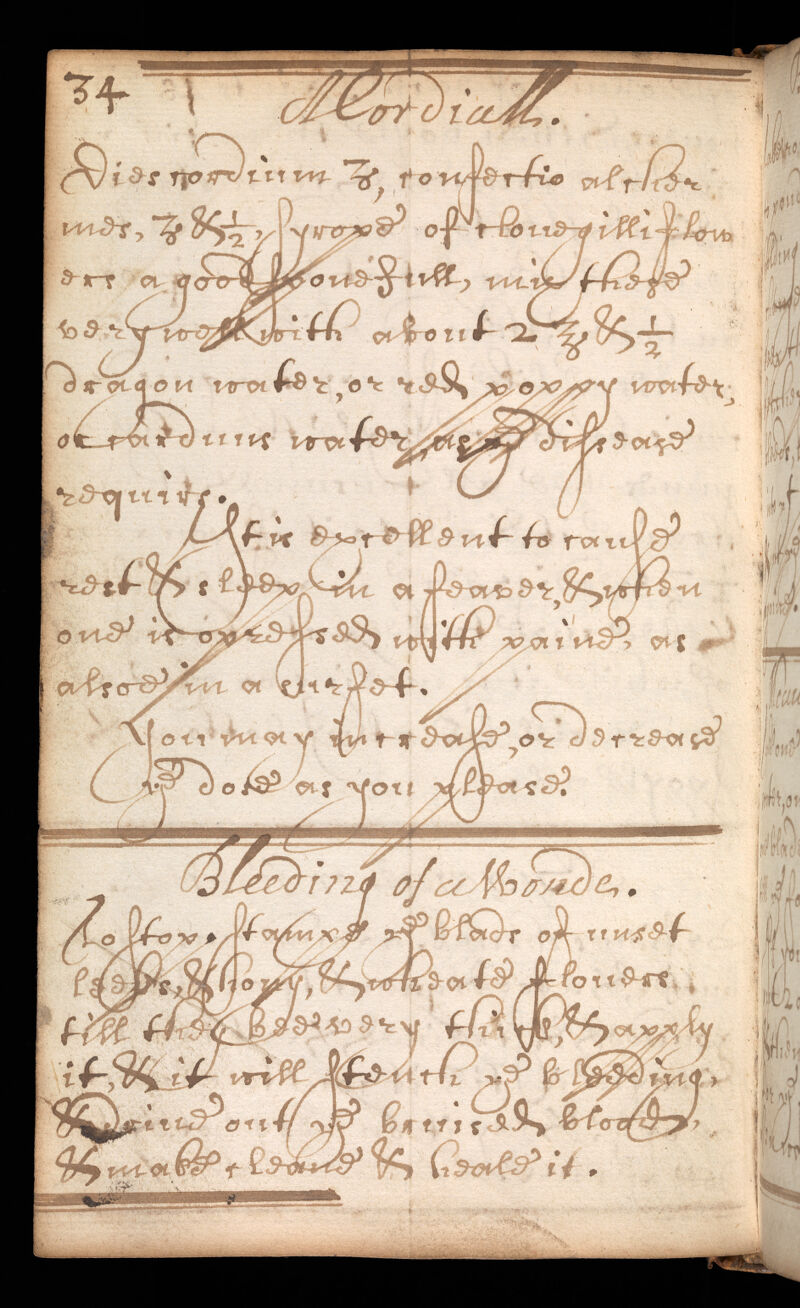 34
A Cordiall.
Diescordium ʒ, confectio alcher
mes, ʒ & ½, syrope of clovegilliflow
ers a good sponefull, mix these
very well with about 2 ℥ & ½
dragon water, or red poppy water,
or carduus water, as yᵉ disscease
requirs.
It is excellent to cause
rest & sleep in a feaver, & when
one is opressed with paine, as
alsoe in a surfet.
You may increase, or decrease
yᵉ dose as you please.
Bleeding of a Wonde.
To stop, stampe yᵉ blads of unset
leeks, & hony, & wheate flouers
till they bee very thick, & apply
it, & it will stench yᵉ bleeding,
& drive out yᵉ bruised blood,
& make cleane & heale it.